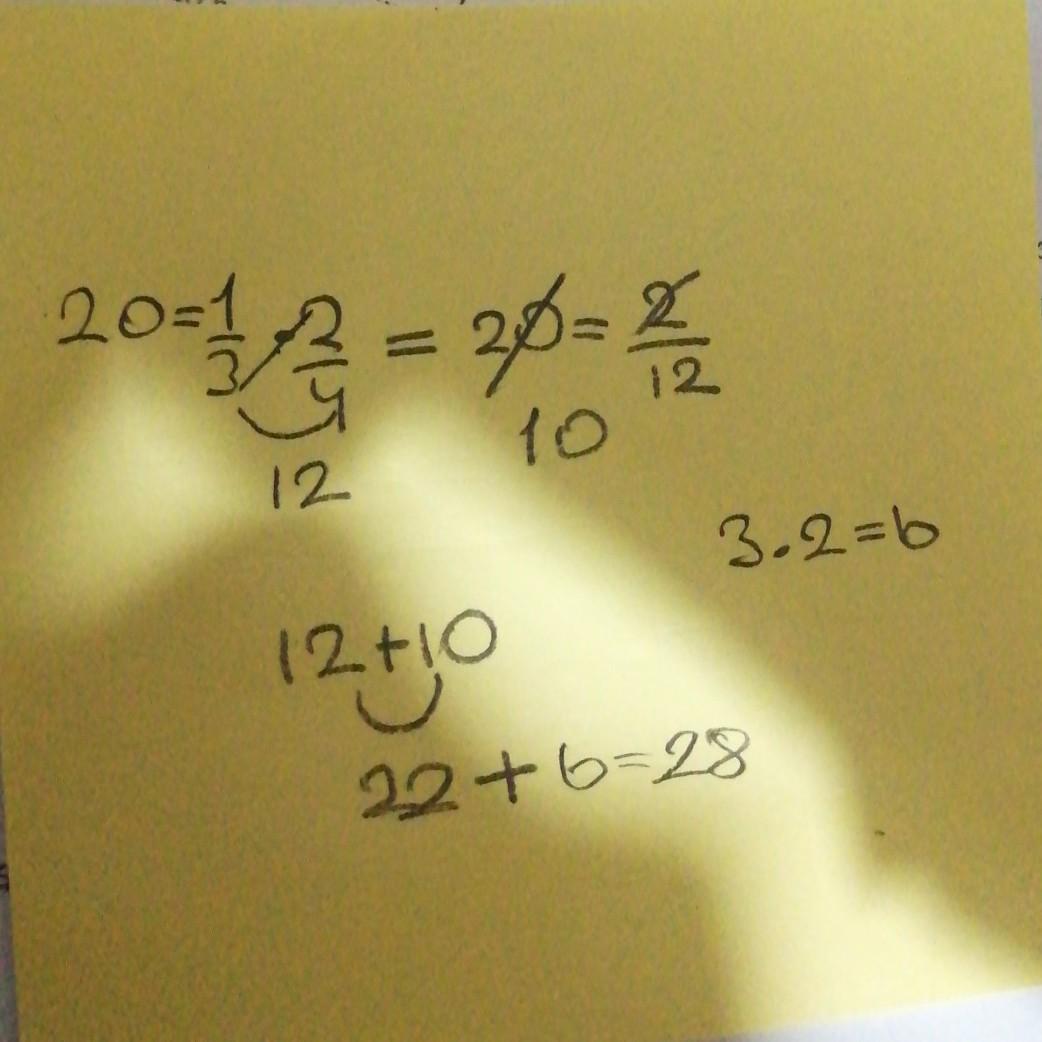 20=1/3·2/4 = 20=2/12
12
10
3.2=6
12+10
22+6=28